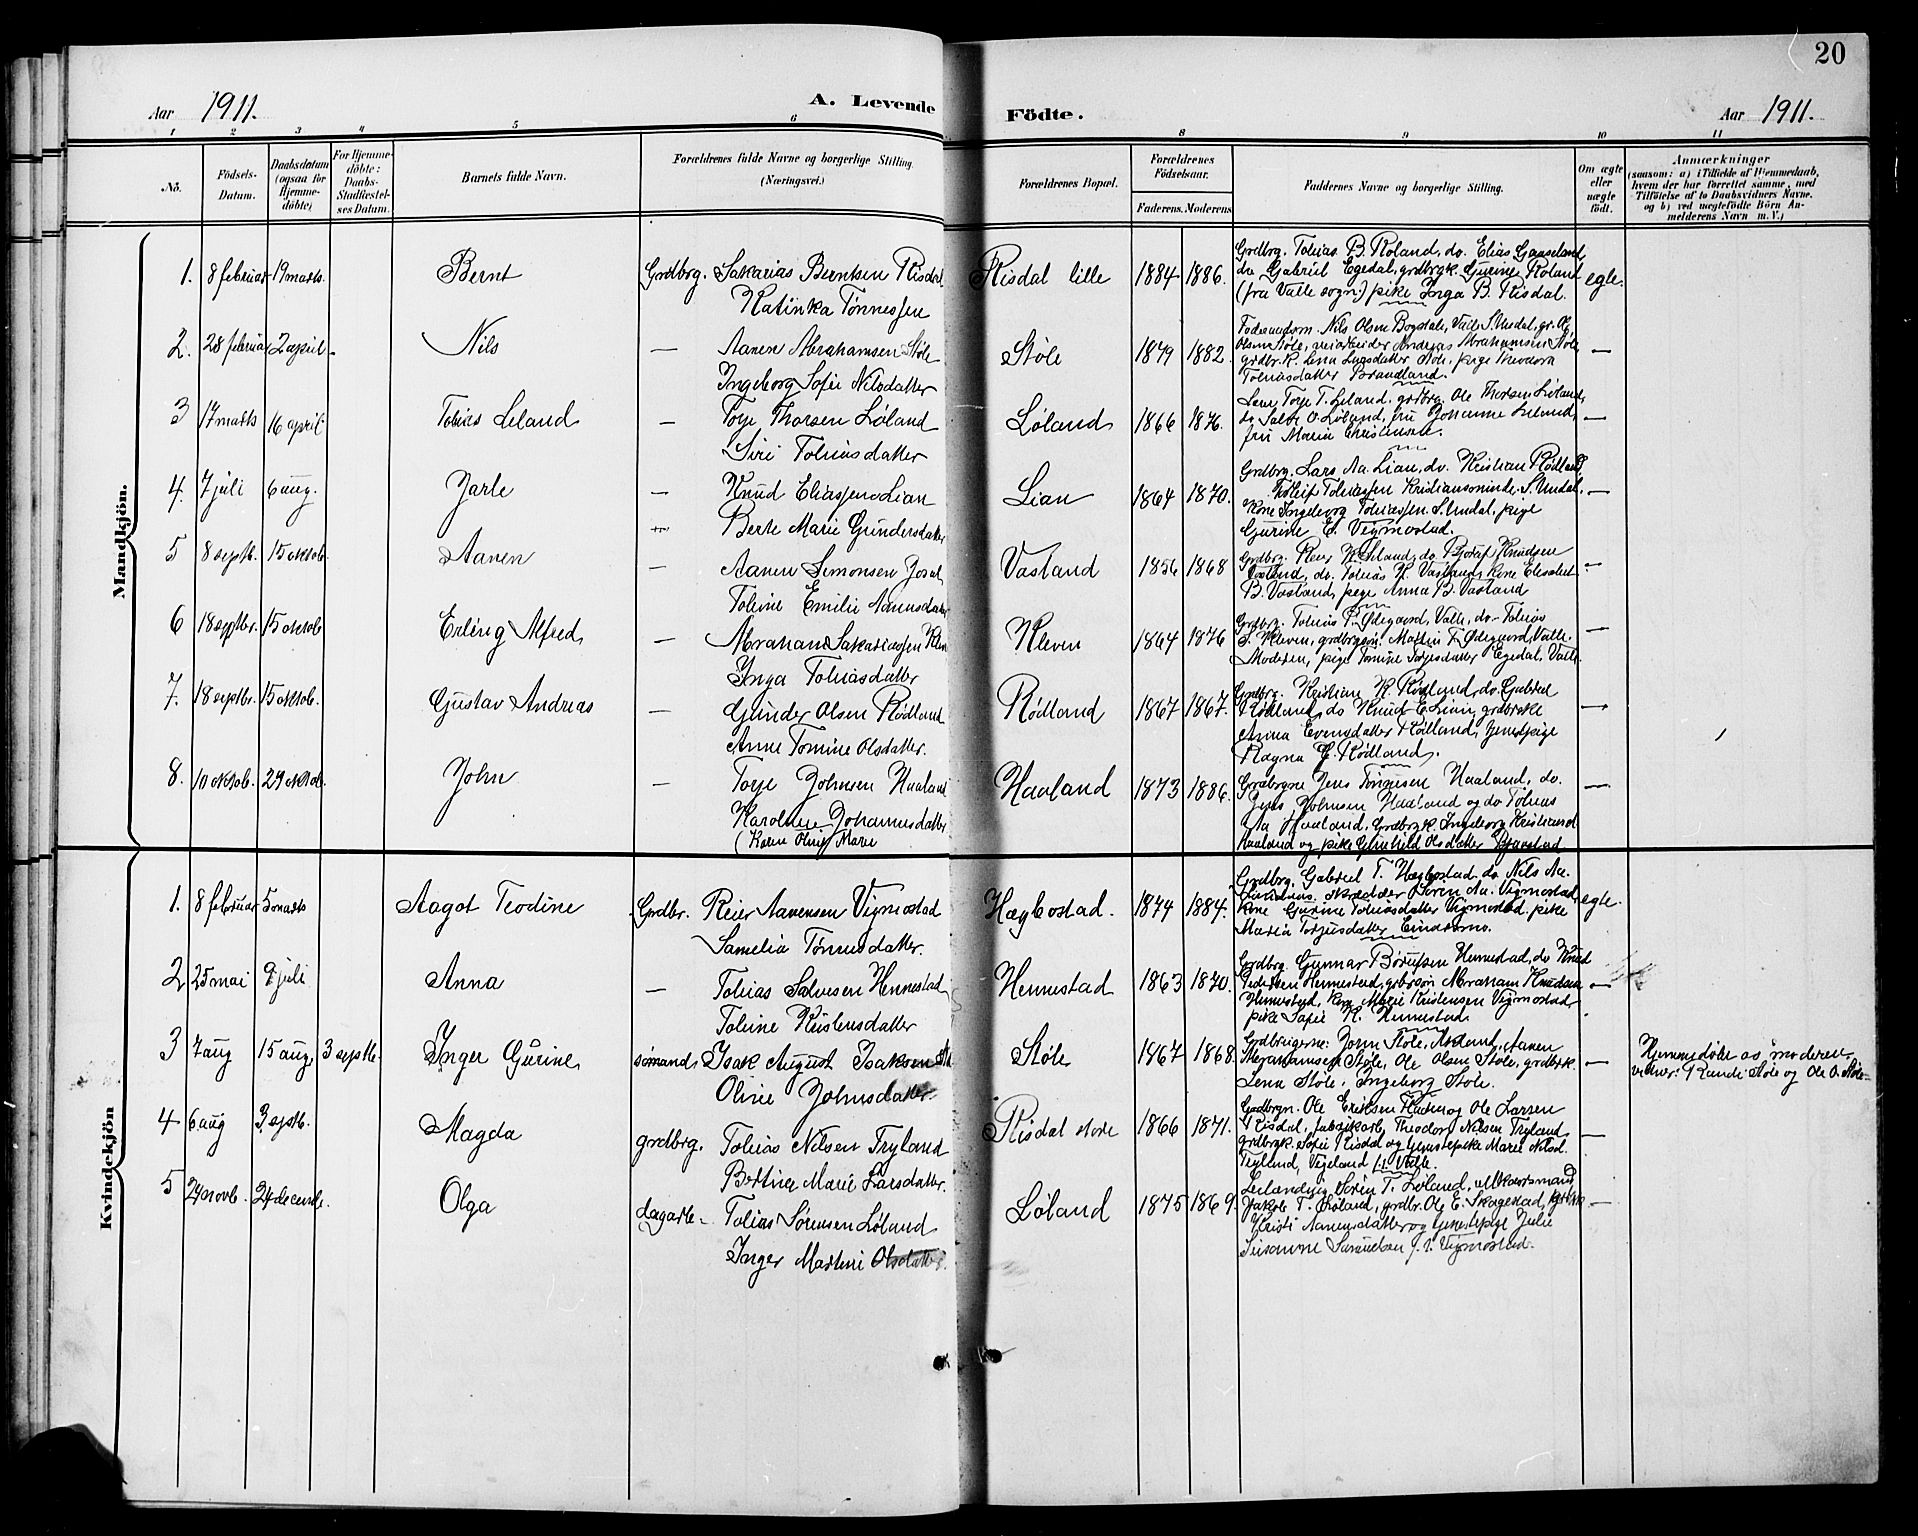 20
Aar 1911. A. Levende Födte. Aar 1911.
1 2 3 4 5 6 8 9 10 11
No.
Födsels-Datum.
Daabsdatum (ogsaa for Hjemme-döbte)
For Hjemme-döbte: Daabs-Stadfæstel-ses Datum.
Barnets fulde Navn.
Forældrenes fulde Navne og borgerlige Stilling.
(Næringsvei.)
Forældrenes Bopæl.
Forældrenes Födselsaar.
Faderens. Moderens
Faddernes Navne og borgerlige Stilling.
Om ægte eller uægte födt.
Anmærkninger
(saasom: a) i Tilfælde af Hjemmedaab,
hvem der har forrettet samme, med
Tilföielse af to Daabsvidners Navne,
og b) ved uægtefödte Börn An-
melderens Navn m. V.)
Mandkjön.
1. 8 februar 19 marts Bernt Grdbrg. Sakarias Berntsen Risdal
Katinka Tønnessen
Risdal lille 1884 1886.
Grdbrg. Tobias B. Roland, do. Elias Gaaseland
do Gabriel Egedal, grdbrgk. Gurine Roland
(fra Valle sogn) pike Inga B. Risdal.
egte.
2. 28 februar 2 april Nils — Aanen Abrahamsen Støle
Ingeborg Sofie Nilsdatter
Støle 1879 1882.
Nils Olsen Valle S. Undal, gr. Ole
Olsen Støle, veiarbeider Andreas Abrahamsen Støle
grdbr.k. Lena Støle, pige Theodora
Tobiasdatter Brandland.
—
3 17 marts 16 april Tobias Leland — Torje Thorsen Løland
Siri Tobiasdatter
Løland 1866 1876.
Torje T. Leland, grdbrg. Ole Thorsen Løland,
do Salve O. Løland, fru Johanne Leland,
frk Maria Christensen.
—
4. 7 juli 6 aug. Jarle — Knud Eliassen Lian
Berte Marie Gundersdatter
Lian 1864 1870.
Grdbrg. Lars Aa. Lian, do. Kristian Rødland,
Tobiassen Kristiansminde S. Undal,
Kone Ingeborg Tobiassen S. Undal, pige
Gurine E. Vigmostad.
—
5 8 septb. 15 oktob. Aanen — Aanen Simonsen
Toline Emilie Aanensdatter
Vasland 1856 1868
Grdbrg. Reier K. Leland, do Knudsen
Vasland, do. Tobias K. Vasland, Kone Elisabet
B. Vasland, pige Anna B. Vasland
—
6 18 septbr. 15 oktob Erling Alfred — Abraham Sakariassen Kleven
Inga Tobiasdatter
Kleven 1864 1876
Grdbrg. Tobias T. Ødegaard, Valle, do. Tobias
S. Kleven, grdbrgsøn. Martin T. Ødegaard, Valle.
Moderen, pige Tomine Egedal, Valle.
—
7. 18 septbr. 15 oktob. Gustav Andreas — Gunder Olsen Rødland
Anne Tomine Olsdatter.
Rødland 1867 1867.
Grdbrg. Kristian K. Rødland, do. Gabriel
Rødland, do Knud E. Lian, grdbrske
Anna Evensdatter Rødland, tjenestpige
Ragna E. Rødland.
—
8. 10 oktob. 29 oktob. John — Torje Johnsen Haaland
Karoline Johannesdatter
(Karen Oline Marie
Haaland 1873 1886.
Grdbrgsøn Jens Haaland, do.
Jens Johnsen Haaland og do Tobias
Aa Haaland, Grdbrgk. Ingeborg Kristiansd
Haaland og pike Gunhild Olsdatter
—
Kvindekjön
1. 8 februar 5 marts Aagot Teodine Grdbr. Reier Aanensen Vigmostad
Samelia Tønnesdatter.
Hægbostad. 1874 1884.
Grdbrg. Gabriel T. Hægbostad do Nils Aa.
skrædder Søren Aa. Vigmostad,
Kone Gurine Tobiasdatter Vigmostad. pike
Maria Torjusdatter Eindersmo.
egte.
2 25 mai 9 juli Anna — Tobias Salvesen Hennestad
Toline Kristensdatter
Hennestad 1863 1870.
Grdbrg. Gunnar Hennestad, do Knud
Pedersen Hennestad, grbrsøn Abraham Knudsen
Hennestad, Kone Marie Kristensen Vigmostad
pike Sofie K. Hennestad.
—
3 7 aug 15 aug, 3 septb. Inger Gurine sømand, Isak August Isaksen
Oline Johnsdatter
Støle 1867 1868.
Grdbrugerne: John Støle, Aanen
Abrahamsen Støle, Ole Olsen Støle, grdbrk.
Lena Støle, Ingeborg Støle.
—
Hjemmedøbt av moderen,
vidner: Randi Støle og Ole O. Støle
4 6 aug 3 septb. Magda grdbrg. Tobias Nilsen Tryland
Bertine Marie Larsdatter.
Risdal store 1866 1871.
Grdbrgn. Ole Eriksen og Ole Larsen
Risdal, fabrikarb. Theodor Nilsen Tryland
grdbrgk. Sofie Risdal og tjenestepike Marie Nilsd.
Tryland, Vigeland i Valle.
—
5 24 novb. 24 decemb. Olga dagarb. Tobias Sørensen Løland
Inger Martine Olsdatter.
Løland 1875 1869.
Søren T. Løland,
Jakob T. Løland, grdbr. Ole E. Skagestad,
Kristi Aanensdatter og tjenestpige Julie
Susanne Samuelsen f. i Vigmostad.
—